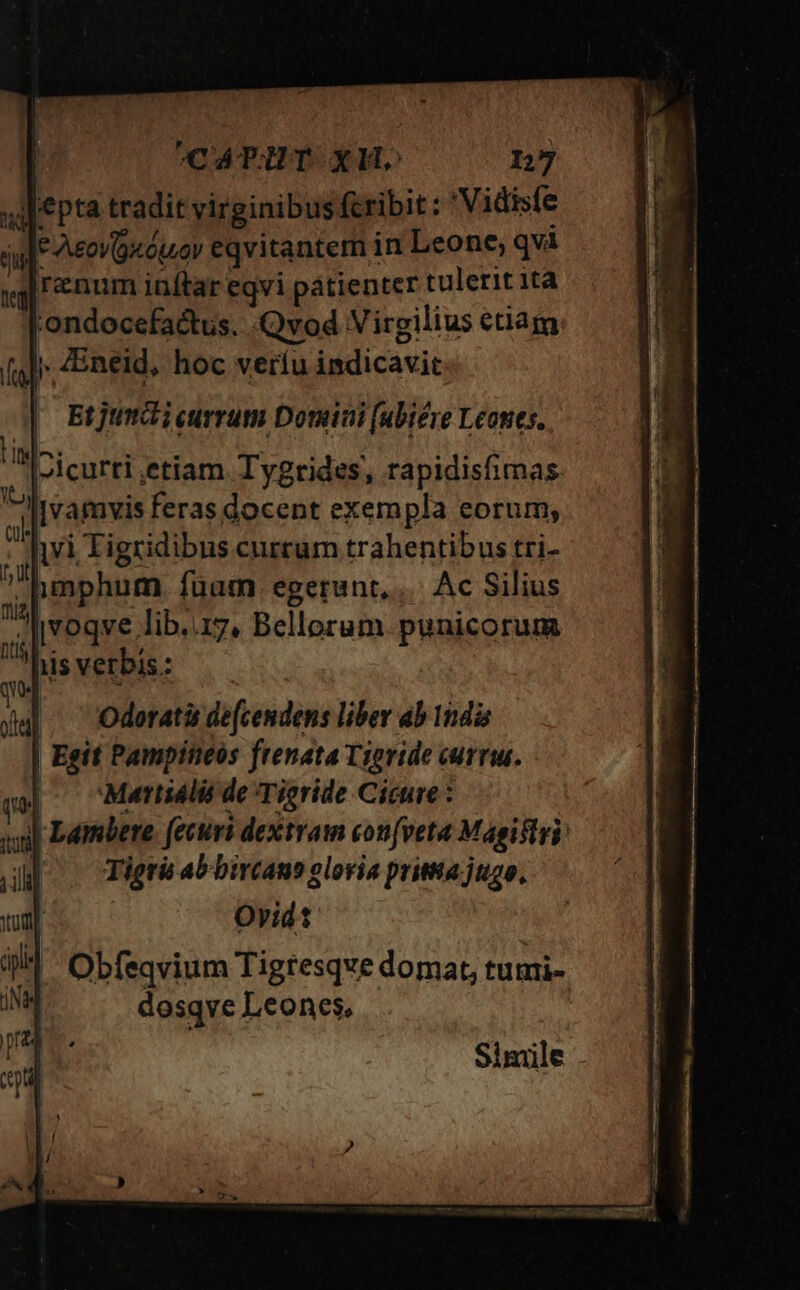 CAPUT XII. 127
epta tradit virginibus ſcribit: Vidisſe
eqvitantem in Leone, qvi
rænum inſtar eqvi patienter tulerit ita
ondocefactus. Qvod Virgilius etiam
Æneid, hoc verſu indicavit
Et juncti currum Domini ſubiére Leones.
icurri etiam Tygrides, rapidisſimas
vamvis feras docent exempla eorum,
vi Tigridibus currum trahentibus tri-
mphum ſuum egerunt, Ac Silius
voqve lib. 17. Bellorum punicorum
his verbis:
Odoratis deſcendens liber ab Indis
Egit Pampineos frenata Tigride currus.
Martialis de Tigride Cicure:
Lambere ſecuri dextram conſveta Magiſtri
Tigris ab hircano gloria prima jugo.
Ovid:
Obſeqvium Tigresqve domat, tumi-
dosqve Leones,
Simile